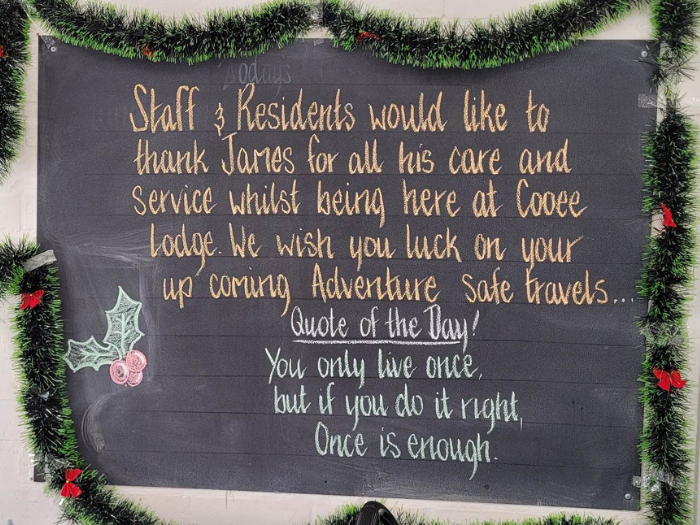 Todays
Staff & Residents would like to
thank James for all his care and
service whilst being here at Cooee
Lodge. We wish you luck on your
up coming Adventure Safe travels...
Quote of the Day!
You only live once,
but if you do it right,
Once is enough.